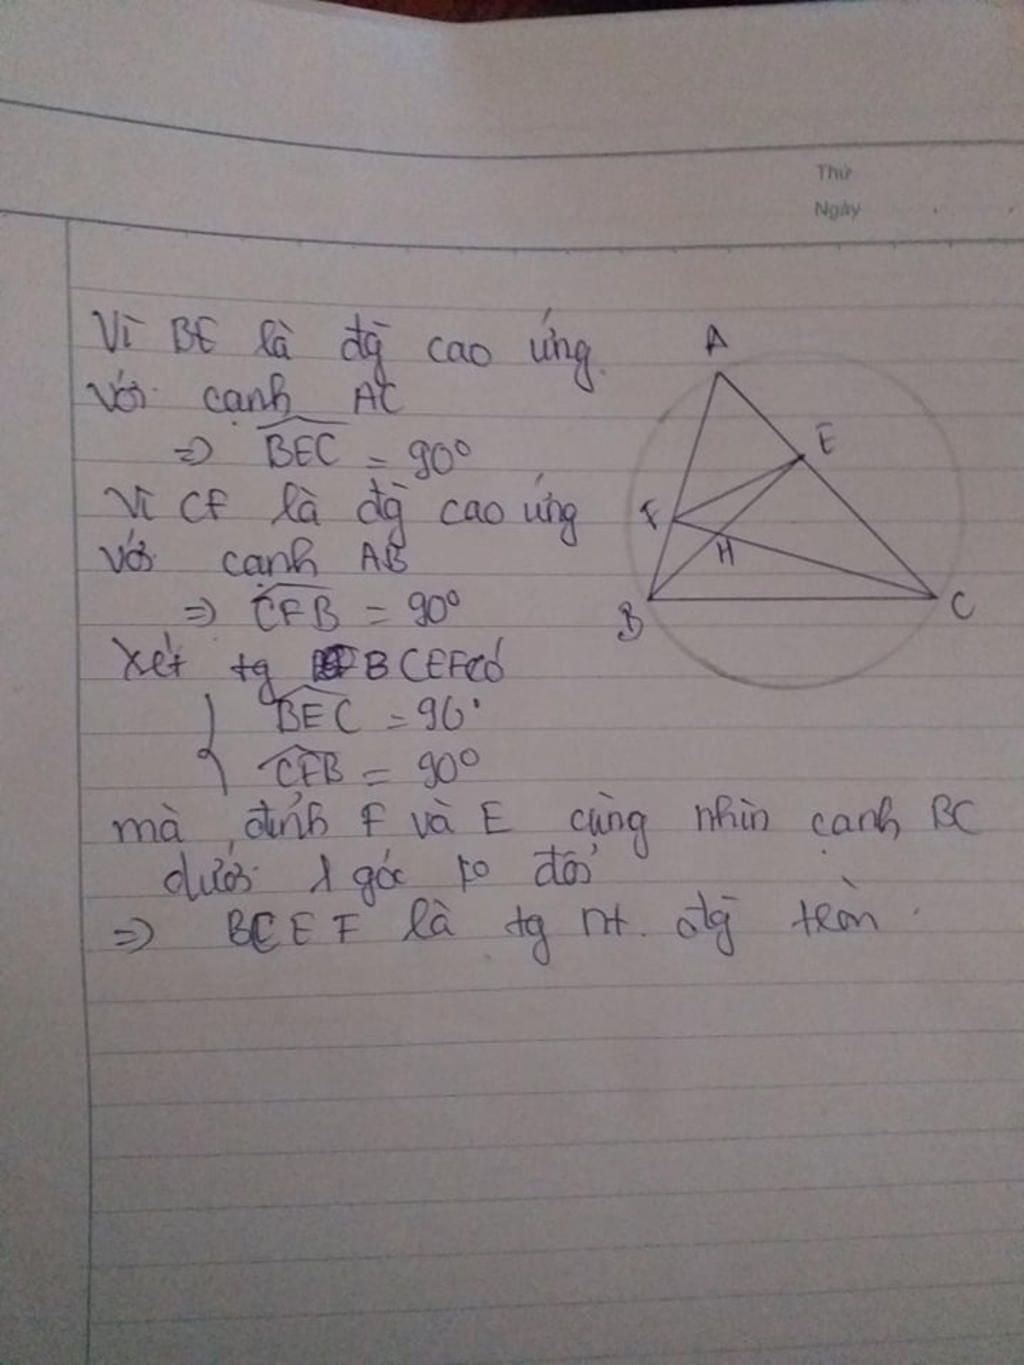 Thứ
Ngày
Vì BE là đg̃ cao ứng
với cạnh AC
=> BEC = 90°
Vì CF là đg̃ cao ứng
với cạnh AB
=> CFB = 90°
Xét tg BCEF có
BEC = 90°
CFB = 90°
mà đỉnh F và E cùng nhìn cạnh BC
dưới 1 góc ko đổi
=> BCEF là tg nt. đg̃ tròn
A
E
F
H
B
C